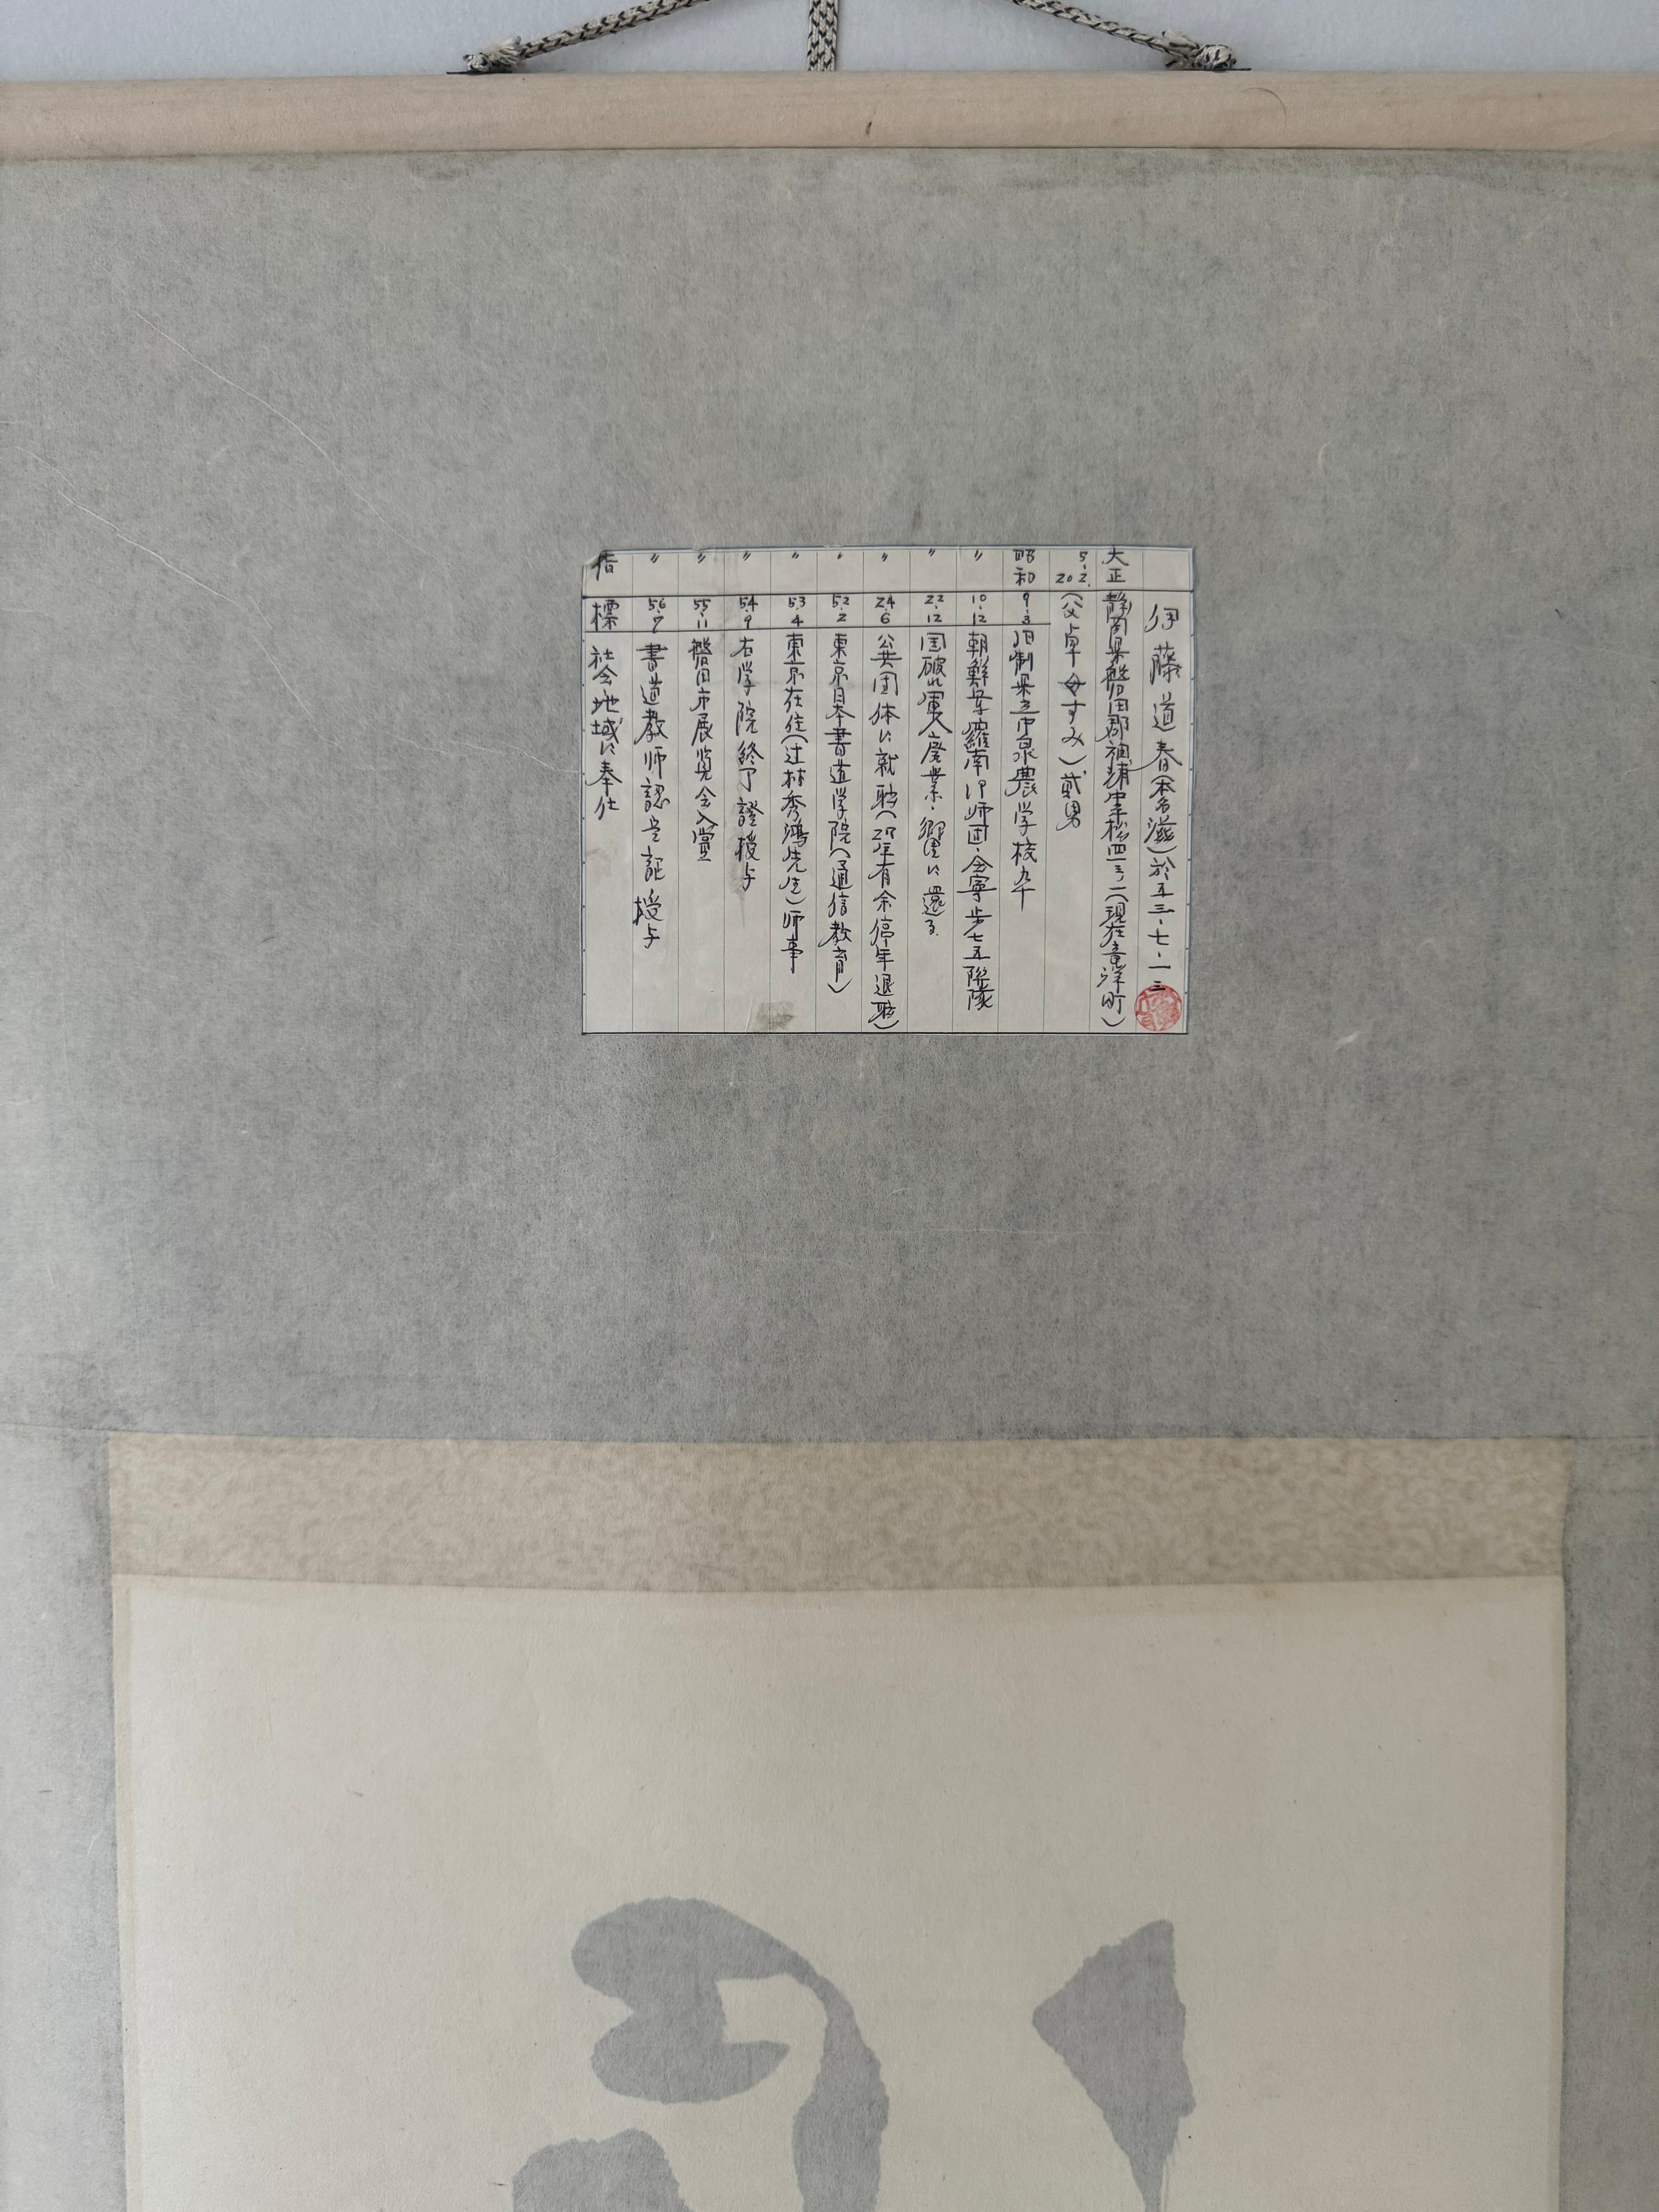 伊藤道春(本名滋)於五三、七、一三
大正 5.2.20 静岡県磐田郡袖浦村中平松四三二(現在竜洋町)
(父卓一母すみ)弐男
昭和 9.3 旧制県立中泉農学校卆
〃 10.12 朝鮮羅南19师団・会寧步七五聯隊
〃 22.12 国破れ軍人廃業・郷里に還る
〃 24.6 公共団体に就職(27年有余停年退職)
〃 52.2 東京日本書道学院(通信教育)
〃 53.4 東京在住(辻林秀鴻先生)師事
〃 54.9 右学院終了證授与
〃 55.11 磐田市展覧会入賞
〃 56.7 書道教师認定証授与
指標 社会地域に奉仕